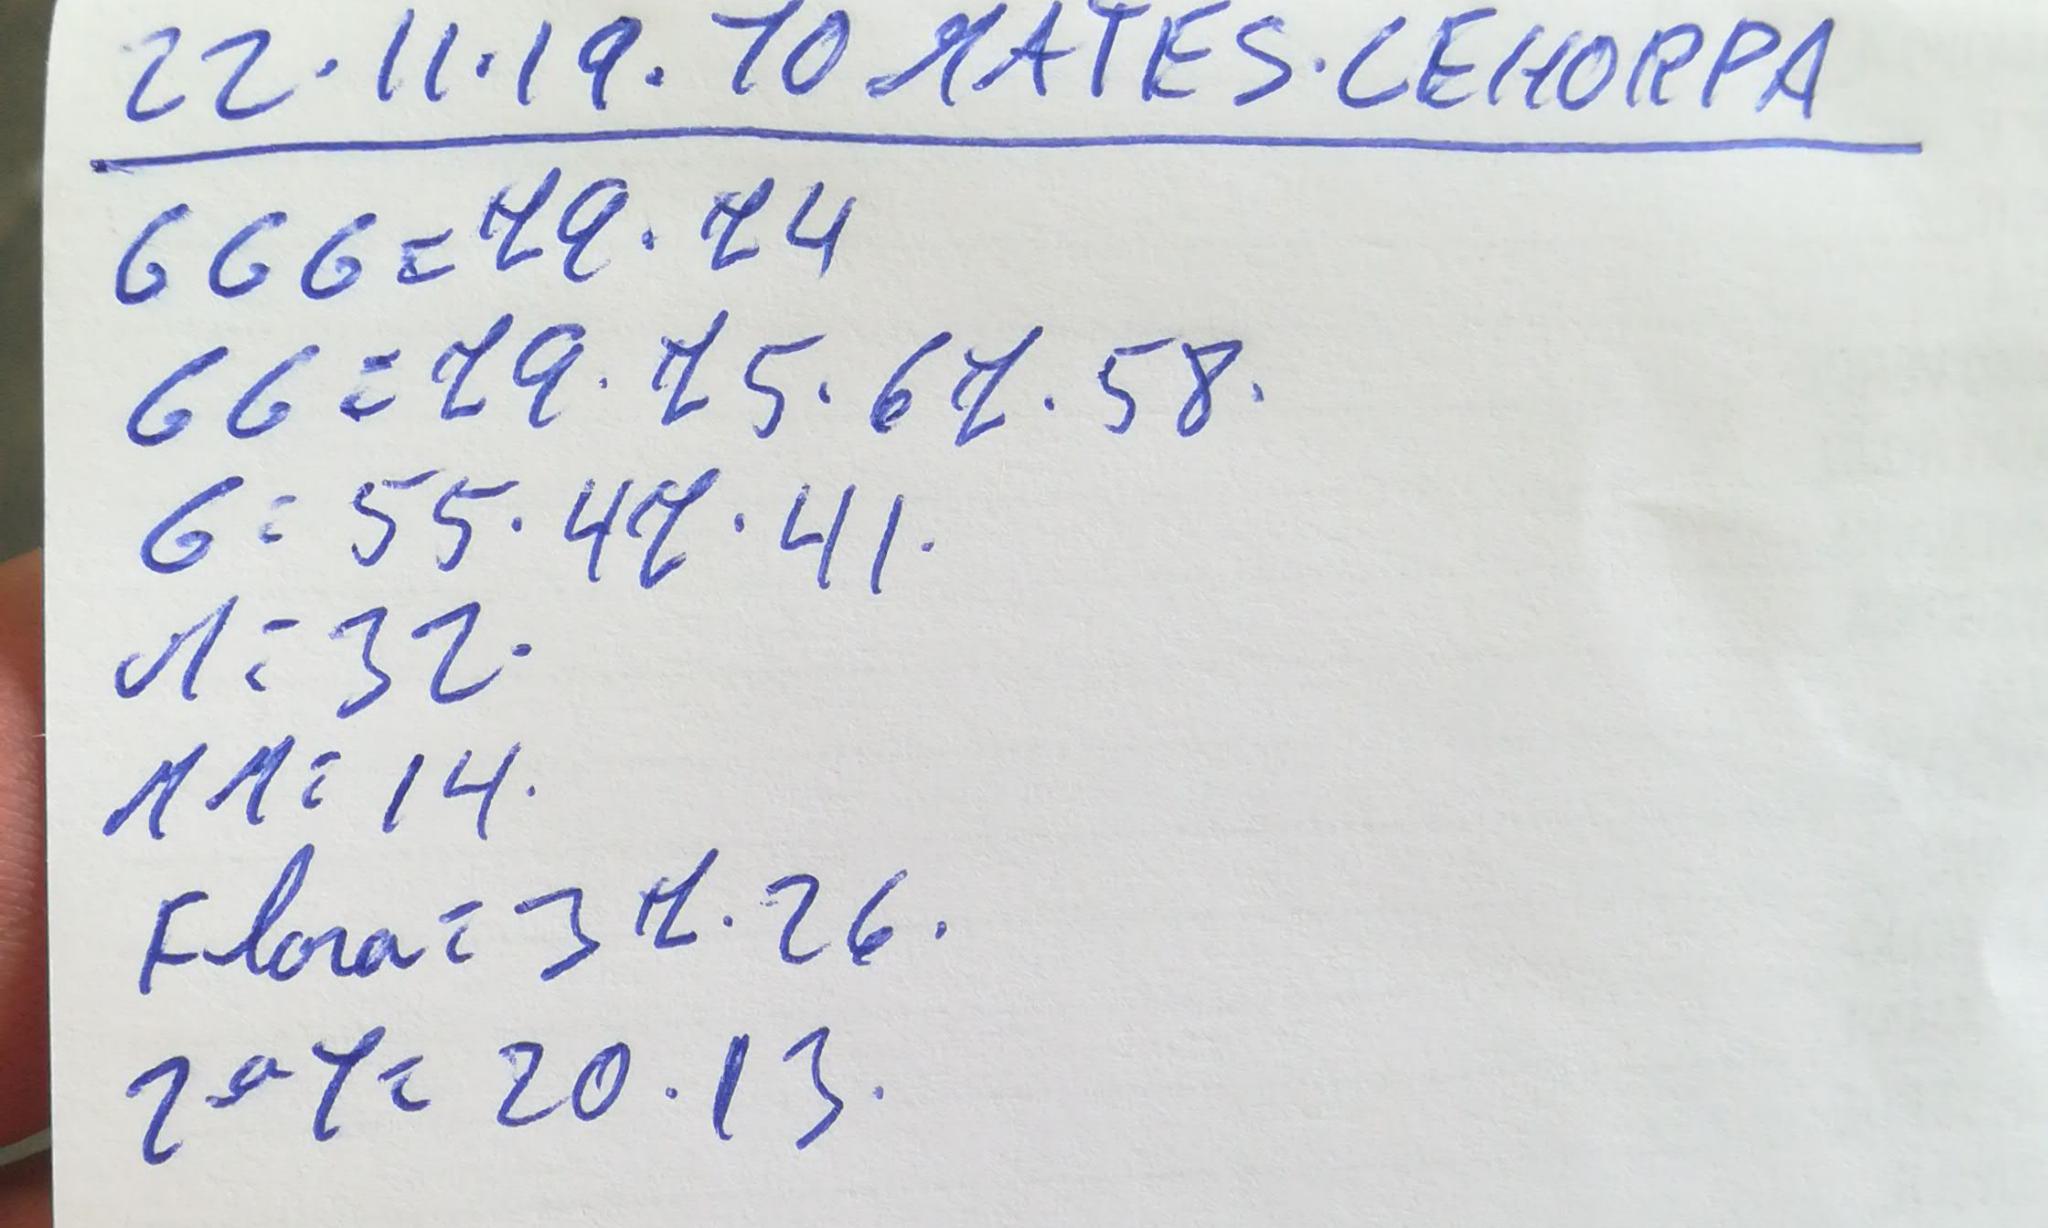 22.11.19.70 MATES.CEHORPA
666=79.74
66=79.75.67.58.
6=55.47.41.
1=32.
11=14.
Flora=37.26.
7=20.13.